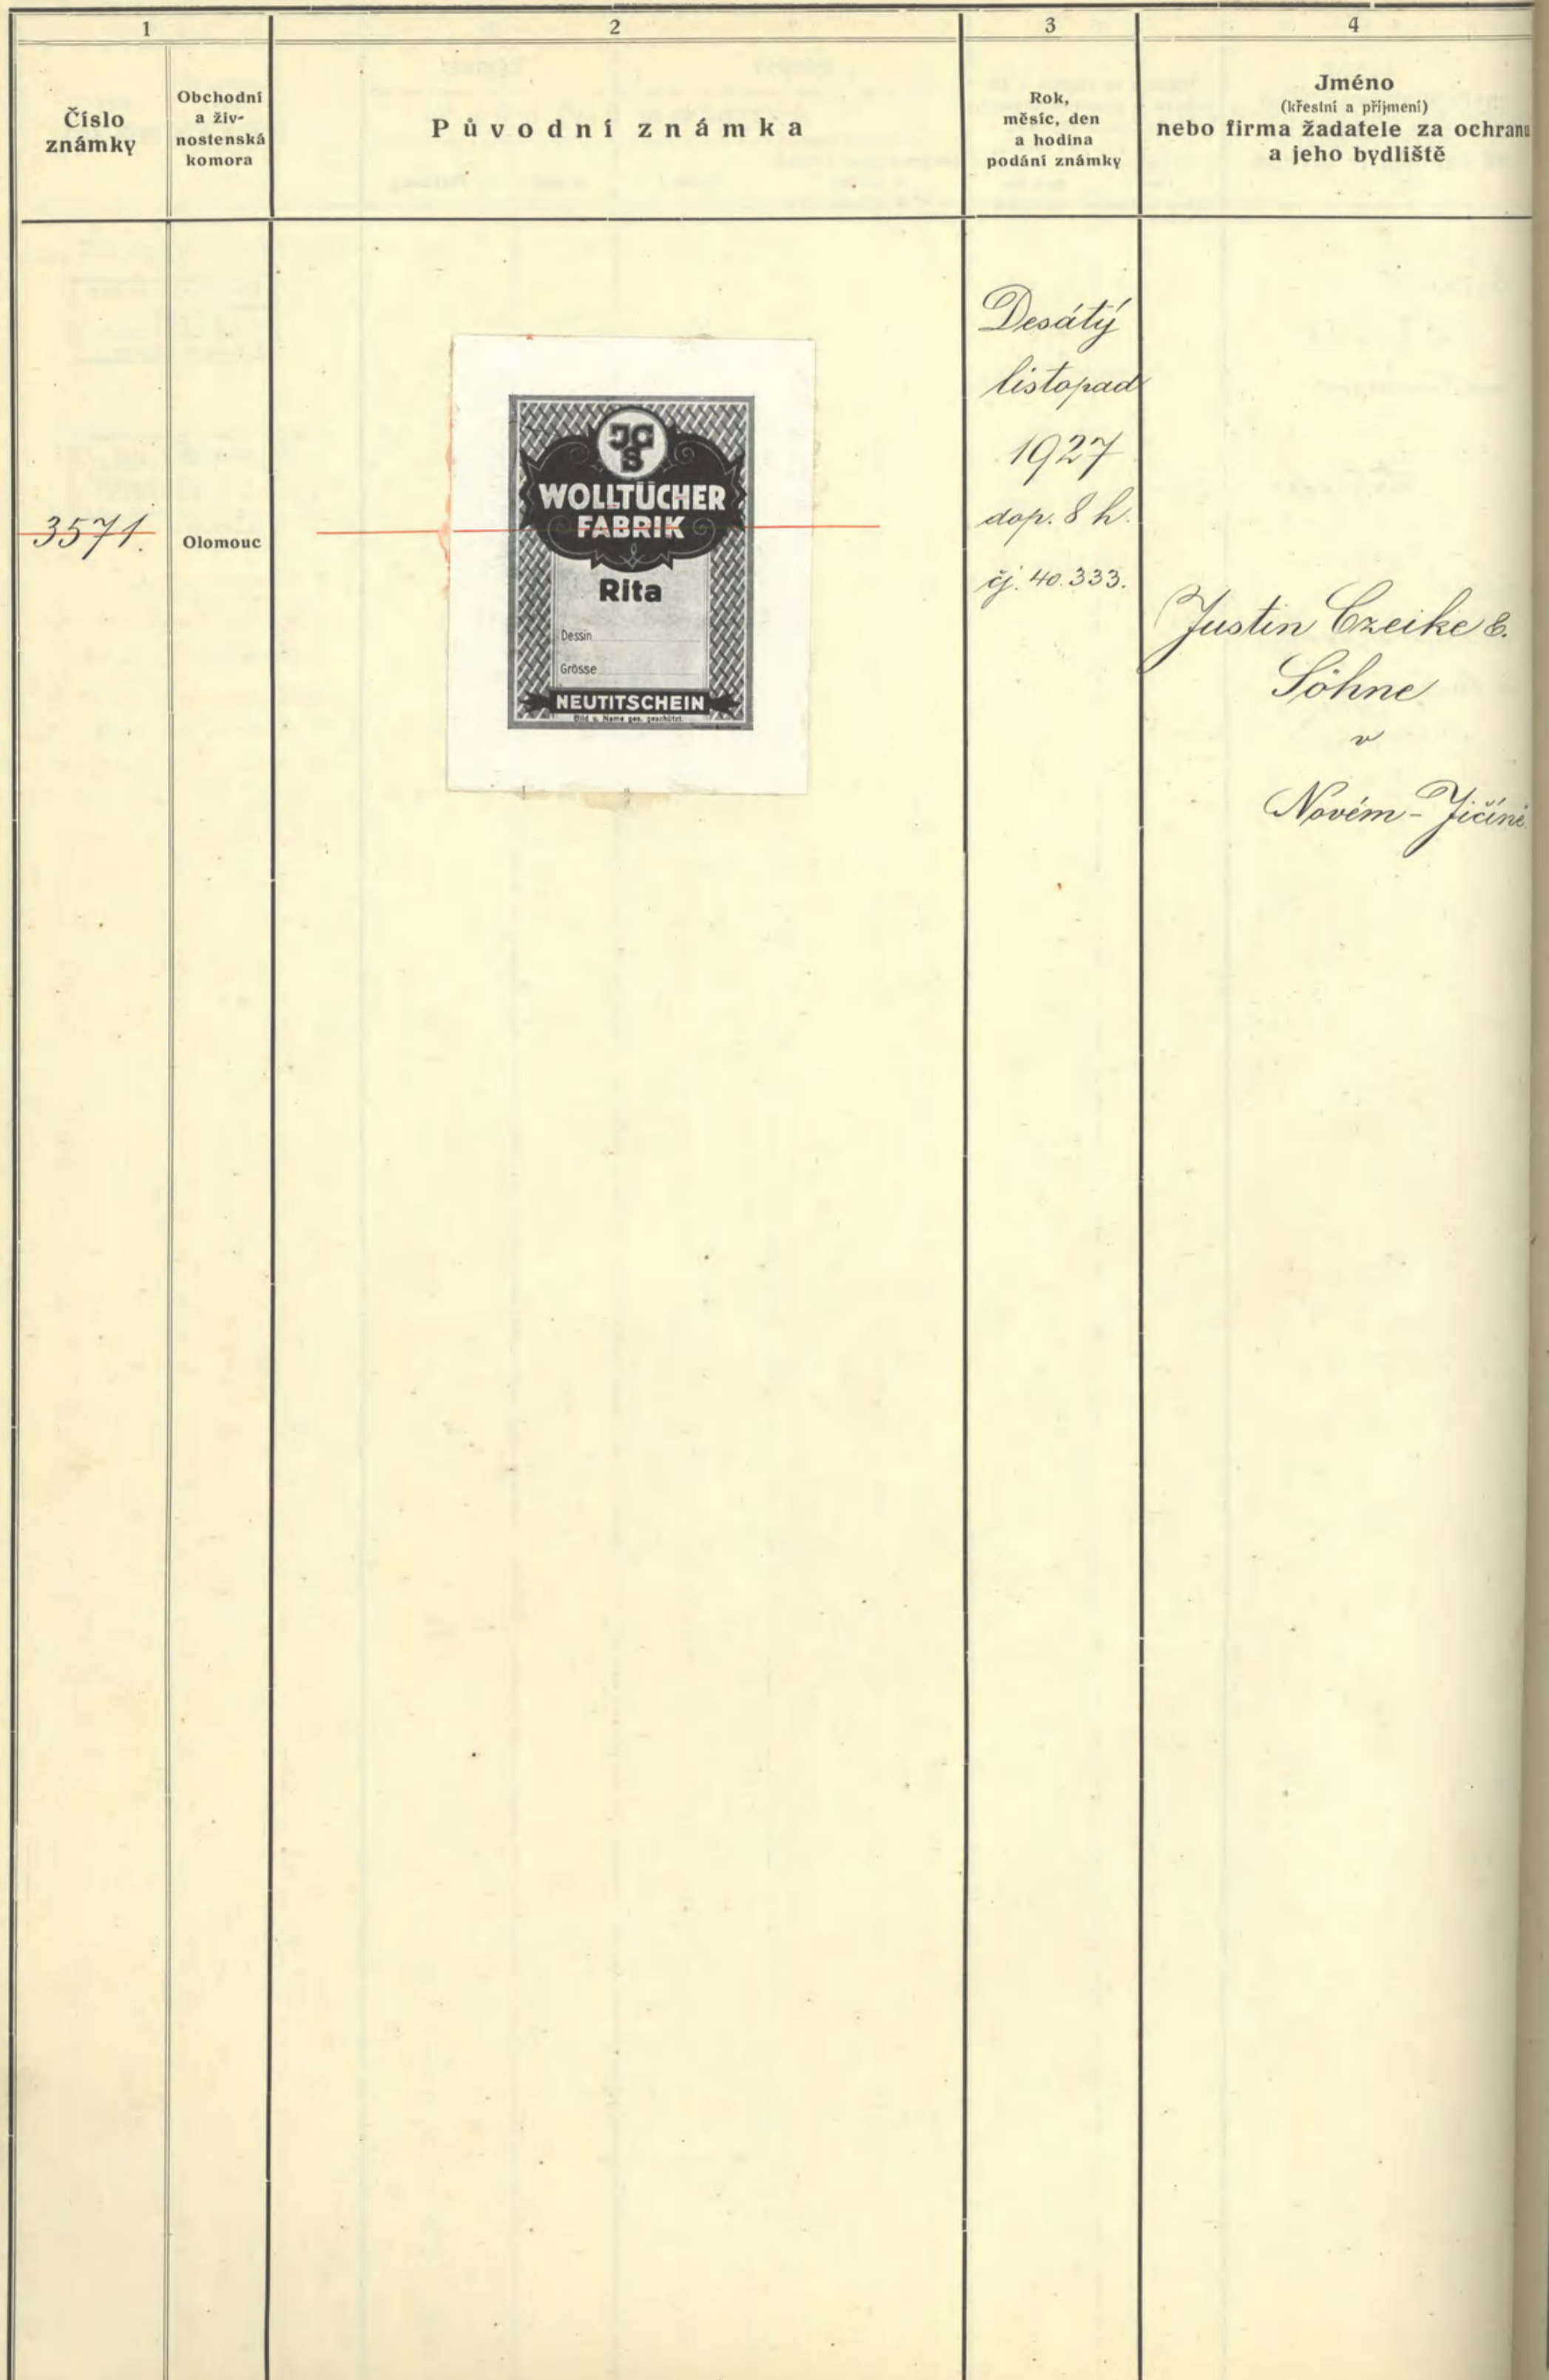 1
2
3
4
Číslo
známky
Obchodní
a živ-
nostenská
komora
Původní známka
Rok,
měsíc, den
a hodina
podání známky
Jméno
(křestní a příjmení)
nebo firma žadatele za ochranu
a jeho bydliště
3571.
Olomouc
JCS
WOLLTÜCHER
FABRIK
Rita
Dessin
Grösse
NEUTITSCHEIN
Bild u. Name ges. geschützt
Desátý
listopad
1927
dop. 8 h.
čj. 40.333.
Justin Czeike &
Söhne
v
Novém-Jičíně.